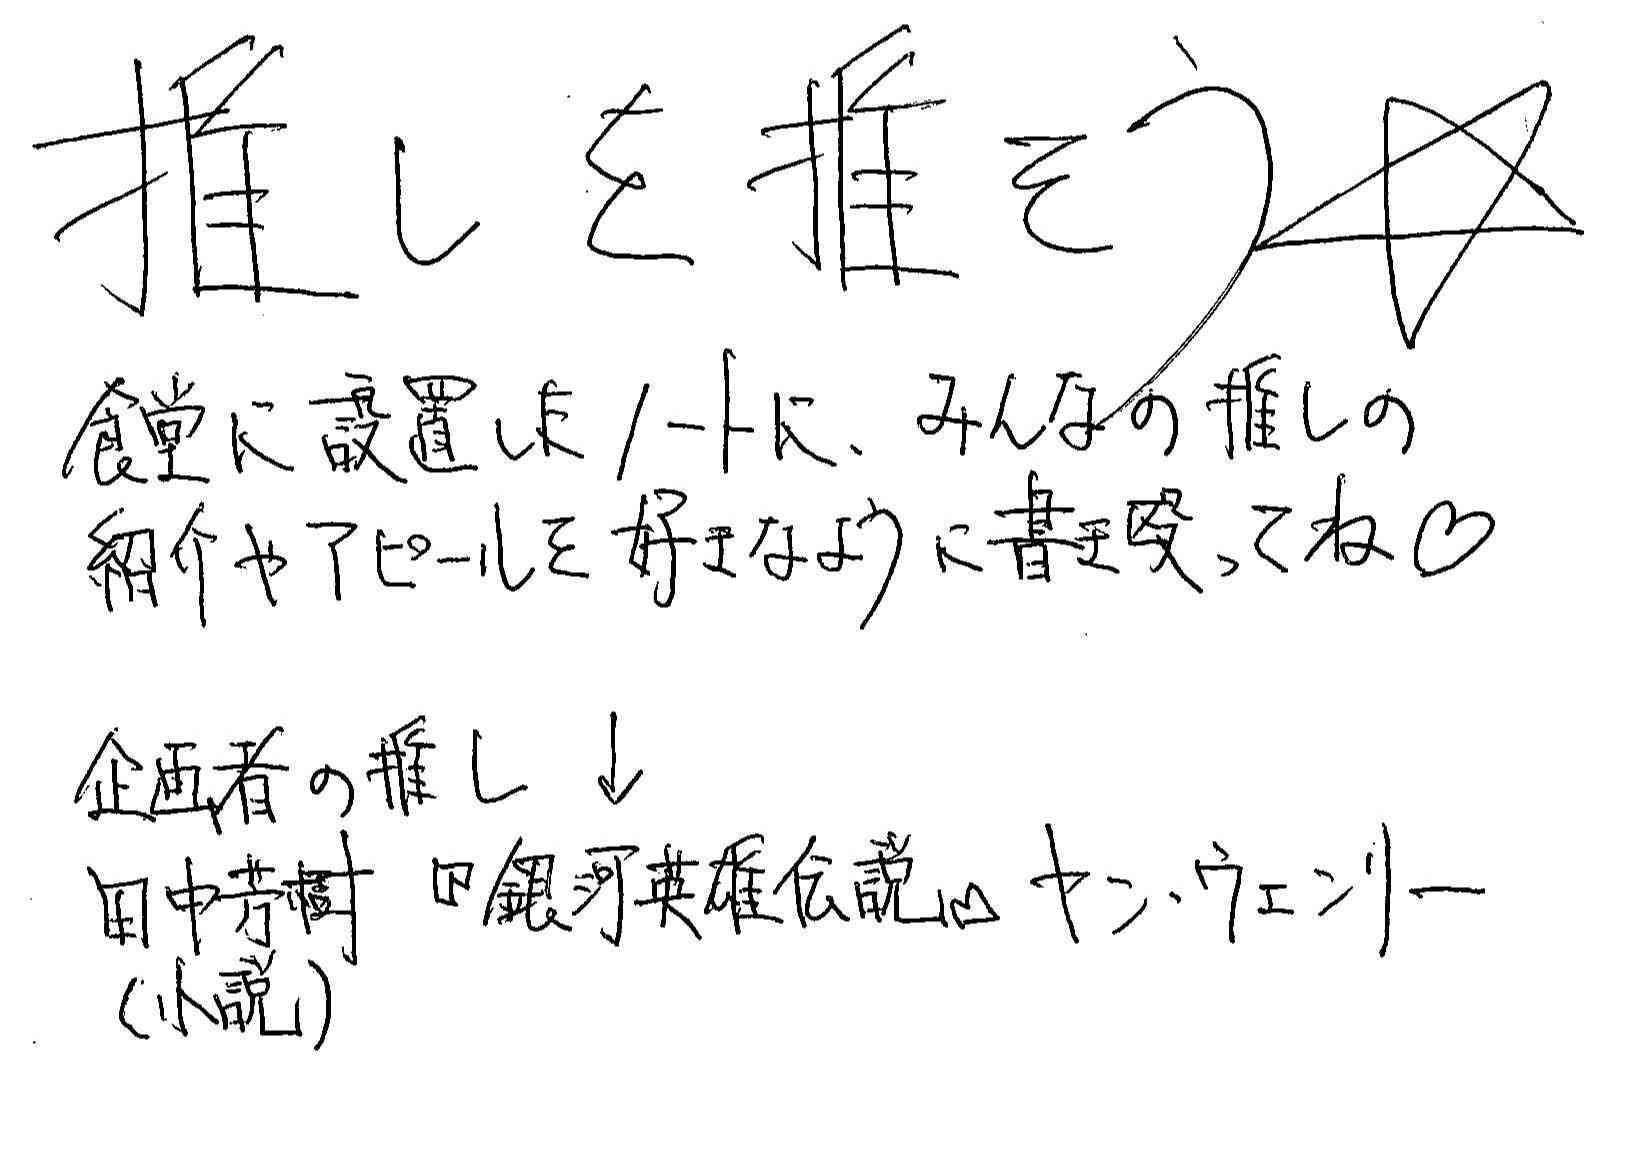 推しを推そう☆
食堂に設置したノートに、みんなの推しの
紹介やアピールを好きなように書き殴ってね♡
企画者の推し ↓
田中芳樹 『銀河英雄伝説』 ヤン・ウェンリー
(小説)